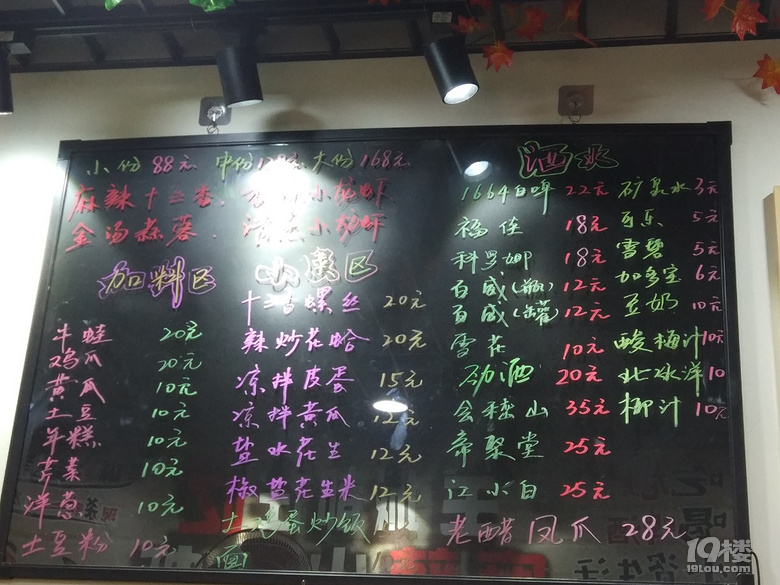 小份 88元 中份 大份 168元
麻辣十三香 小龙虾
金汤蒜蓉 清蒸小龙虾
加料区
牛蛙 20元
鸡爪 20元
黄瓜 10元
土豆 10元
年糕 10元
芹菜 10元
洋葱 10元
土豆粉 10元
小食区
十三香螺丝 20元
辣炒花蛤 20元
凉拌皮蛋 15元
凉拌黄瓜 12元
盐水花生 12元
椒盐花生米 12元
土鸡蛋炒饭
面
酒水
1664白啤 22元
福佳 18元
科罗娜 18元
百威(瓶) 12元
百威(罐) 12元
雪花 10元
劲酒 20元
会稽山 35元
帝聚堂 25元
江小白 25元
老醋凤爪 28元
矿泉水 3元
可乐 5元
雪碧 5元
加多宝 6元
豆奶 10元
酸梅汁 10元
北冰洋 10
椰汁 10元
19楼
19lou.com